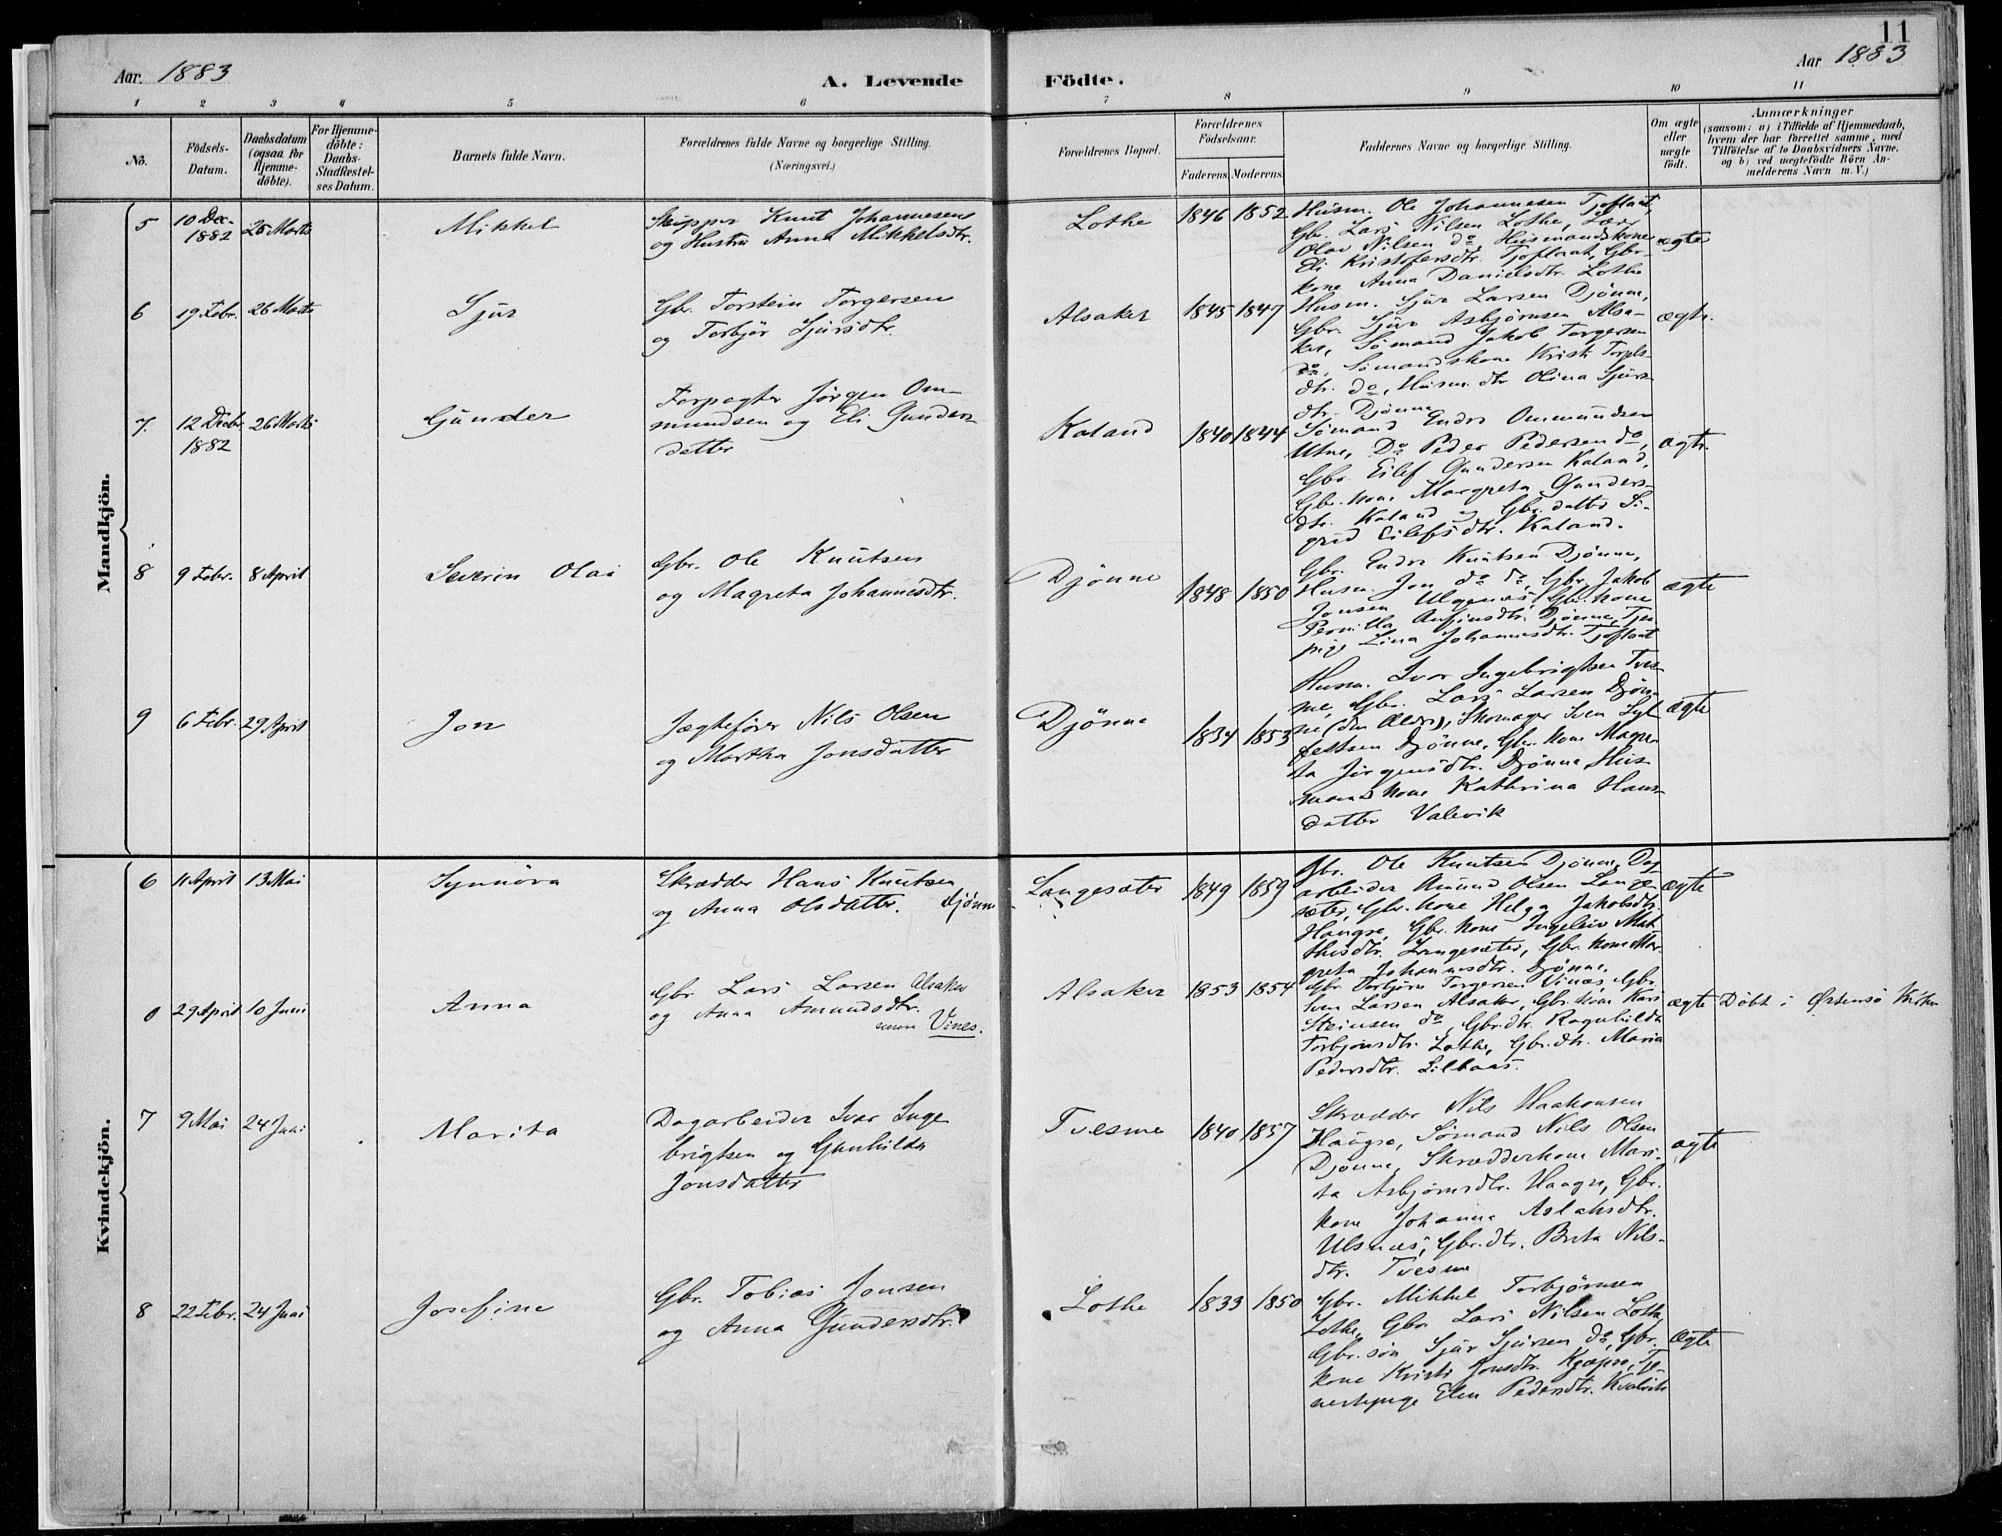 11
Aar. 1883
A. Levende
Födte.
Aar 1883
1 2 3 4 5 6 7 8 9 10 11
No.
Födsels-
Datum.
Daabsdatum
(ogsaa for
Hjemme-
döbte).
For Hjemme-
döbte:
Daabs-
Stadfæstel-
ses Datum.
Barnets fulde Navn.
Forældrenes fulde Navne og borgerlige Stilling.
(Næringsvei.)
Forældrenes Bopæl.
Forældrenes
Födselsaar.
Faderens. Moderens.
Faddernes Navne og borgerlige Stilling.
Om ægte
eller
uægte
födt.
Anmærkninger
(saasom: a) i Tilfælde af Hjemmedaab,
hvem der har forrettet samme, med
Tilföielse af to Daabsvidners Navne,
og b) ved uegtefödte Börn An-
melderens Navn m. V.)
Mandkjön.
5
10 Dec.
1882
26 Marts
Mikkel
Skipper Knut Johannesen
og Hustru Anna Mikkelsdtr.
Lothe
1846 1852
Husm. Ole Johannesen Tjoflaat,
Gbr. Lars Nilsen Lothe,
Olav Nilsen do Husmandskone
Eli Kristofersdtr. Tjoflaat, Gbr-
kone Anna Danielsdtr. Lothe
ægte
6
19 Febr.
26 Marts
Sjur
Gbr. Torstein Torgersen
og Torbjør Sjursdtr.
Alsaker
1845 1847
Husm. Sjur Larsen Djønne,
Gbr. Sjur Asbjørnsen Alsa-
ker, Sømand Jakob Torgersen
do, Sømandskone Kristi Torgels-
dtr. do, Husm. dtr Olina Sjurs-
dtr. Djønne
ægte.
7.
12 Decbr
1882
26 Marts
Gunder
Forpagter Jørgen Om-
mundsen og Eli Gunders-
datter
Kaland
1840 1844
Sømand Endre Ommundsen
Utne, Do Peder Pedersen do,
Gbr. Eilef Gundersen Kaland,
Gbr. kone Margreta Gunders-
dtr. Kaland og Gbr. datter Si-
grid Eilefsdtr. Kaland.
ægte.
8
9 Febr.
8 April
Severin Olai
Gbr. Ole Knutsen
og Magreta Johannesdtr.
Djønne
1848 1850
Gbr. Endre Knutsen Djønne,
Husm. Jon do do, Gbr. Jakob
Jonsen Ulgenæs, Gbr. kone
Pernilla Anfinsdtr. Djønne, Tjen.
pige Lina Johannesdtr. Tjoflaat
ægte
9
6 Febr.
29 April
Jon
Jægtefører Nils Olsen
og Martha Jonsdatter
Djønne
1834 1853
Husm. Ivar Ingebrigtsen Tves-
me, Gbr. Lars Larsen Djøn-
ne (den Ældre), Skomager Sven Syl-
festsen Djønne, Gbr. kone Magre-
ta Jørgensdtr. Djønne, Hus-
mandskone Kathrina Hans-
datter Valevik
ægte
Kvindekjön.
6
11 April
13 Mai
Synnøva
Skrædder Hans Knutsen
og Anna Olsdatter. Djønne
Langesæter
1849 1859
Gbr. Ole Knutsen Djønne, Dag-
arbeider Amund Olsen Lange-
sæter, Gbr. kone Helga Jakobsdtr.
Haugse, Gbr. kone Ingeleiv Mat-
thisdtr. Langesæter, Gbr. kone Mar-
greta Johannesdtr. Djønne.
ægte
0
29 April
10 Juni
Anna
Gbr Lars Larsen Alsaker
og Anna Amundsdtr.
Vines.
Alsaker
1853 1854
Gbr. Torbjørn Torgersen Vinæs, Gbr.
Sven Larsen Alsaker, Gbr. kone Kari
Steinsen do, Gbr. dtr. Ragnhilda
Torbjørnsdtr. Lothe, Gbr. dtr. Maria
Pedersdtr. Lilhaas.
ægte
Døbt i Østensø Kirke
7
9 Mai
24 Juni
Marita
Dagarbeider Ivar Inge
brigtsen og Gunhilda
Jonsdatter
Tvesme
1840 1857
Skrædder Nils Haakonsen
Haugse, Sømand Nils Olsen
Djønne, Skrædderkone Mari-
ta Asbjørnsdtr. Haugse, Gbr.
kone Johanna Aslaksdtr.
Ulsnæs, Gbr. dtr. Brita Nils-
dtr. Tvesme
ægte
8
22 Febr.
24 Juni
Josefine
Gbr. Tobias Jonsen
og Anna Gundersdtr.
Lothe
1833 1850
Gbr. Mikkel Torbjørnsen
Lothe, Gbr. Lars Nilsen Lothe,
Gbr. søn Sjur Sjursen do, Gbr.
kone Kristi Jonsdtr. Tje-
nestepige Elen Pedersdtr. Kvalvik
ægte